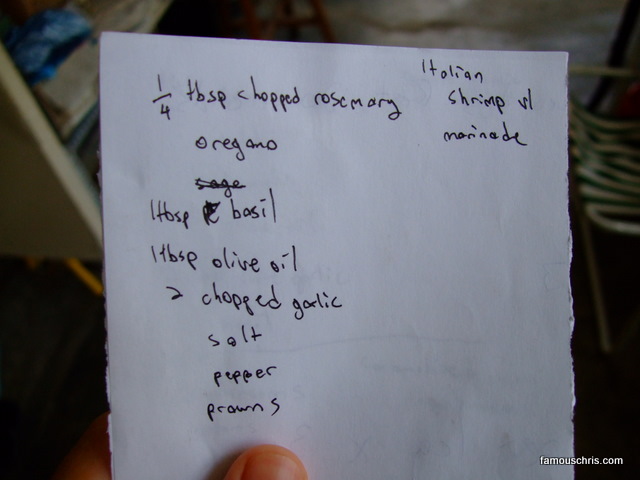 Italian
shrimp w/
marinade
1/4 tbsp chopped rosemary
oregano
sage
1 tbsp basil
1 tbsp olive oil
2 chopped garlic
salt
pepper
prawns
famouschris.com